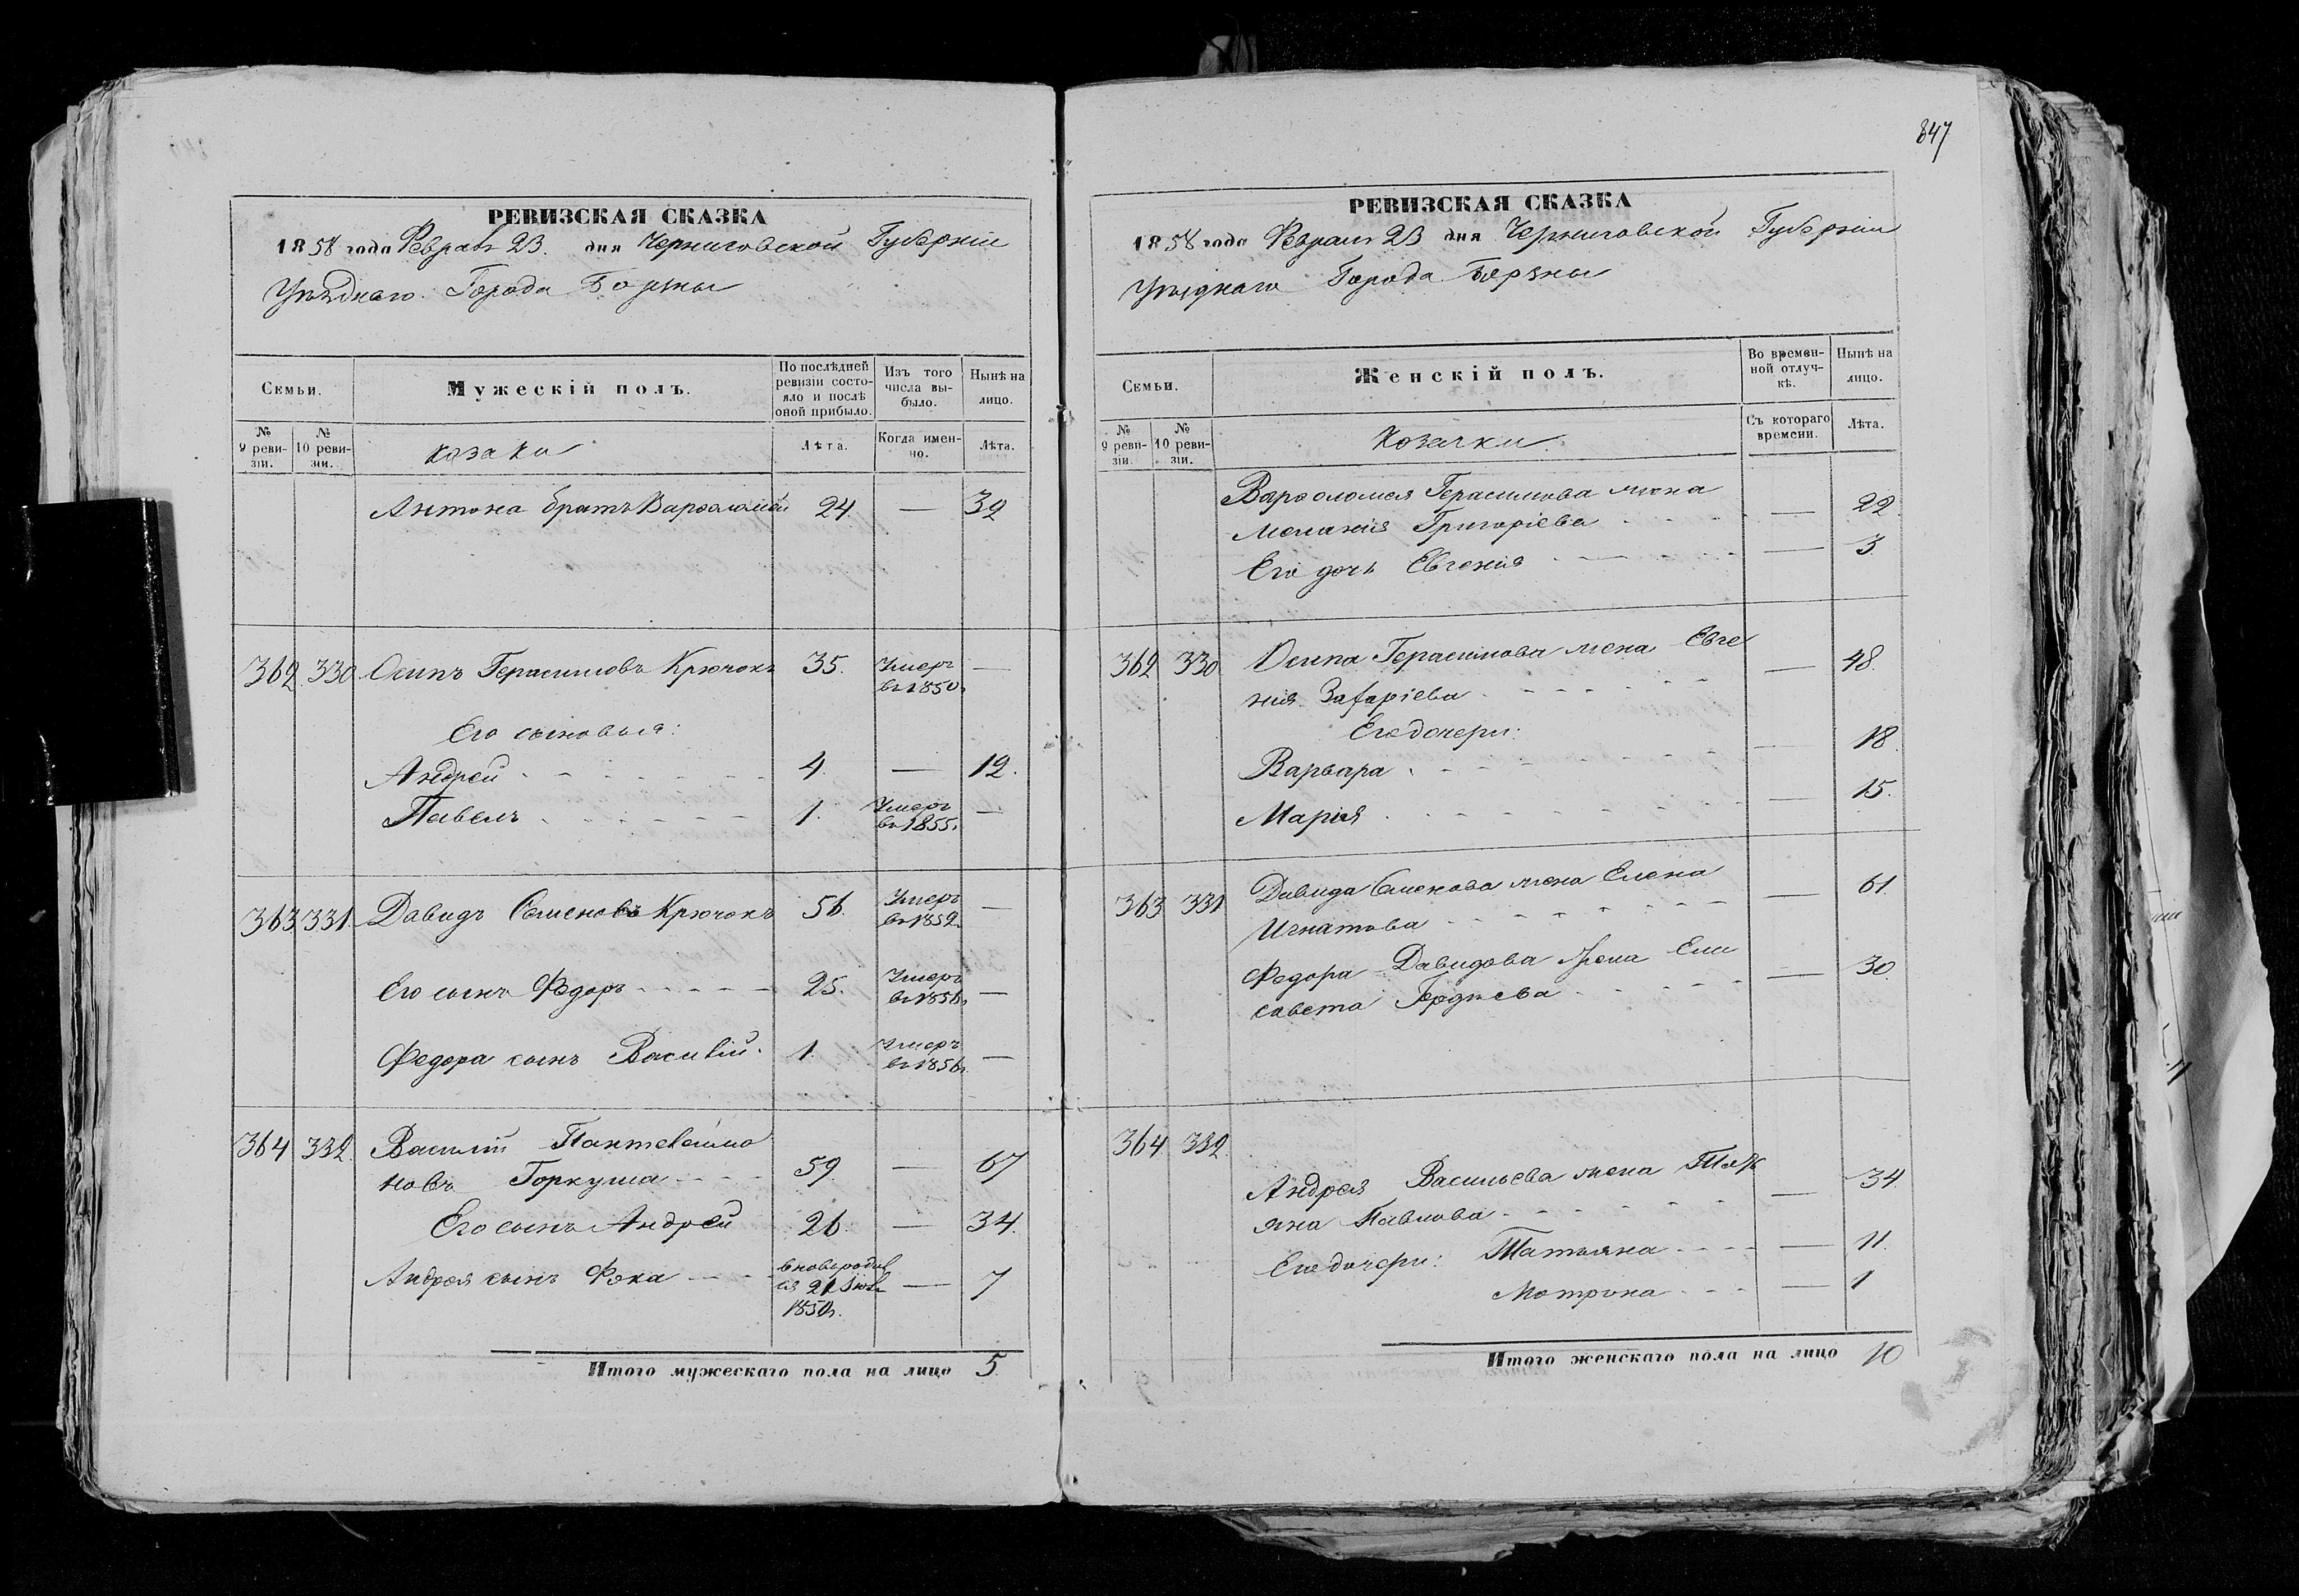 847
РЕВИЗСКАЯ СКАЗКА
1858 года Февраля 23 дня Черниговской Губерніи
Уѣзднаго Города Борзны
Семьи.
Мужескій полъ.
По послѣдней ревизіи состояло и послѣ оной прибыло.
Изъ того числа выбыло.
Нынѣ на лицо.
№ 9 ревизіи.
№ 10 ревизіи.
козаки
Лѣта.
Когда именно.
Лѣта.
Антона братъ Варѳоломей 24 — 32
362 330 Осипъ Герасимовъ Крючокъ 35. Умеръ —
въ 1850г.
Его сыновья:
Андрей 4. — 12.
Павелъ 1. Умеръ —
въ 1855г.
363 331 Давидъ Семеновъ Крючокъ 56. Умеръ —
въ 1852г.
Его сынъ Федоръ 25. Умеръ —
въ 1856г.
Федора сынъ Василій 1. Умеръ —
въ 1856г.
364 332 Василій Пантелеймо
новъ Горкуша 59 — 67
Его сынъ Андрей 26. — 34.
Андрея сынъ Фока вновьродив
ся 21 — 7
1850г.
Итого мужескаго пола на лицо 5
РЕВИЗСКАЯ СКАЗКА
1858 года Февраля 23 дня Черниговской Губерніи
Уѣзднаго Города Борзны
Семьи.
Женскій полъ.
Во временной отлучкѣ.
Нынѣ на лицо.
№ 9 ревизіи.
№ 10 ревизіи.
Козачки.
Съ котораго времени.
Лѣта.
Варѳоломея Герасимова жена
Меланія Григоріева — 22
Его дочь Евгенія — 3
362 330 Осипа Герасимова жена Евге
нія Захаріева — 48.
Его дочери:
Варвара — 18.
Марія — 15.
363 331 Давида Семенова жена Елена
Игнатова — 61.
Федора Давидова жена Ели
савета Гордѣева — 30
364 332
Андрея Васильева жена Тать
яна Павлова — 34.
Его дочери: Татьяна — 11.
Мотрона — 1
Итого женскаго пола на лицо 10